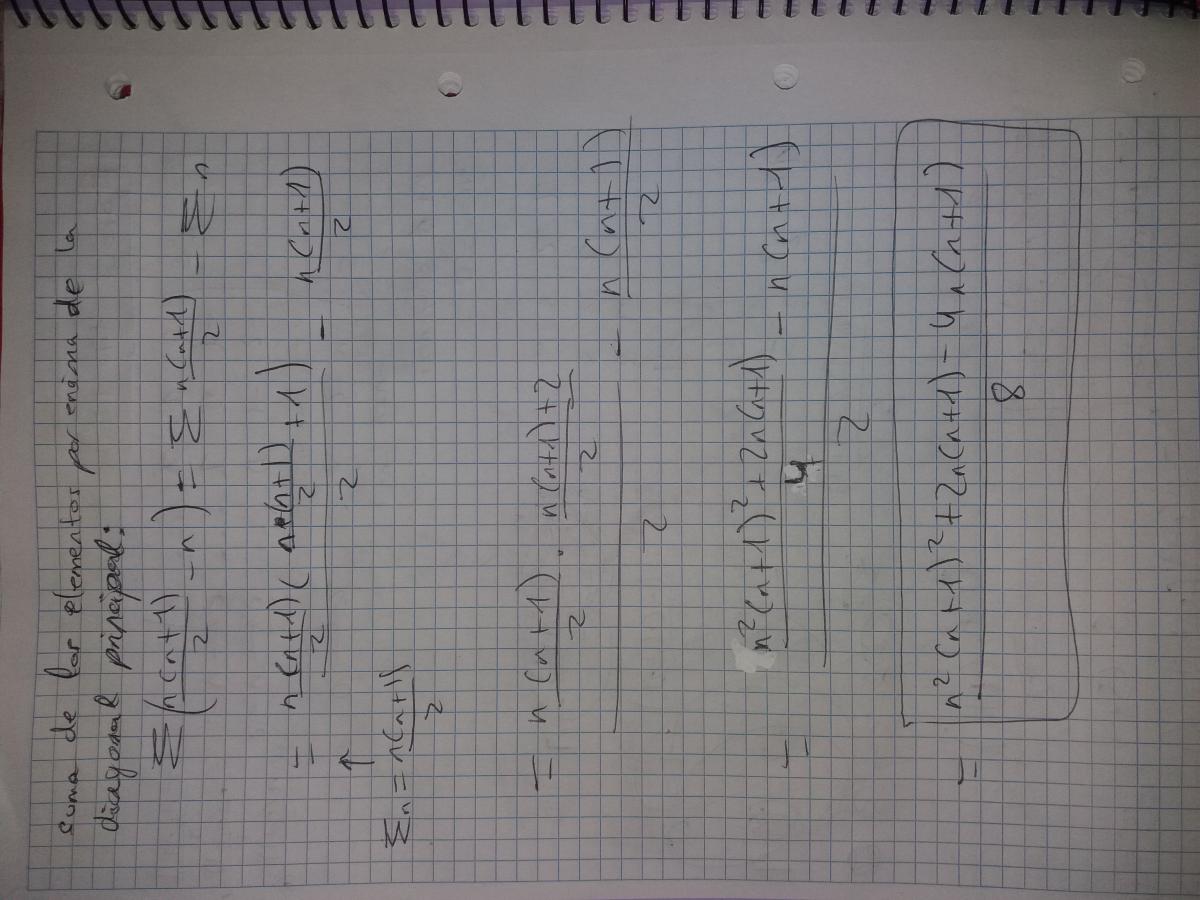 suma de los elementos por encima de la
diagonal principal:
Σ(n(n+1)/2 - n) = Σ n(n+1)/2 - Σn
= n(n+1)/2 (n(n+1)/2 + 1)/2 - n(n+1)/2
↑
Σn = n(n+1)/2
= n(n+1)/2 · n(n+1)+2/2 /2 - n(n+1)/2
= n²(n+1)² + 2n(n+1)/4 - n(n+1) /2
= n²(n+1)² + 2n(n+1) - 4n(n+1)/8